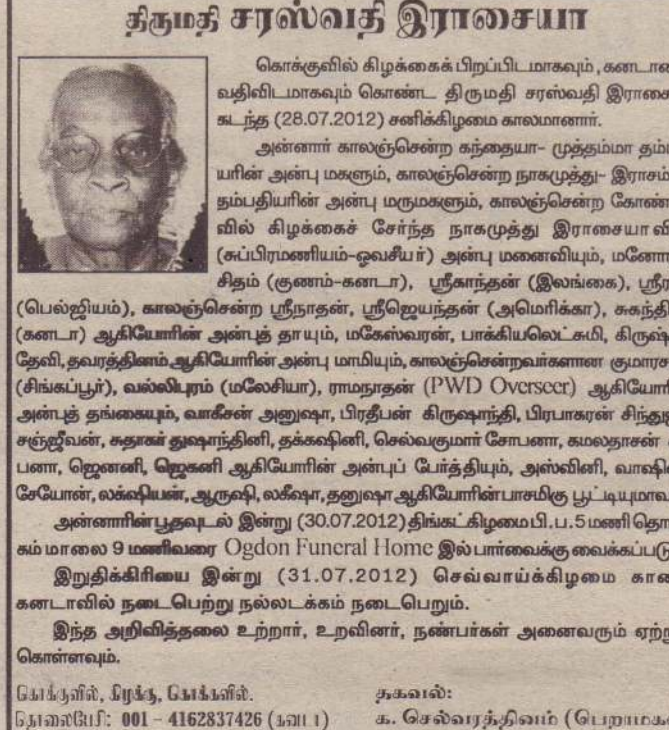 திருமதி சரஸ்வதி இராசையா
கொக்குவில் கிழக்கைக் பிறப்பிடமாகவும், கனடாவை
வதிவிடமாகவும் கொண்ட திருமதி சரஸ்வதி இராசை
கடந்த (28.07.2012) சனிக்கிழமை காலமானார்.
அன்னார் காலஞ்சென்ற கந்தையா- முத்தம்மா தம்ப
யரின் அன்பு மகளும், காலஞ்சென்ற நாகமுத்து- இராசம்
தம்பதியரின் அன்பு மருமகளும், காலஞ்சென்ற கோண்
வில் கிழக்கைச் சேர்ந்த நாகமுத்து இராசையாவி
(சுப்பிரமணியம்-ஓவசீயர்) அன்பு மனைவியும், மனோ
சிதம் (குணம்-கனடா), ஸ்ரீகாந்தன் (இலங்கை), ஸ்ரீர
(பெல்ஜியம்), காலஞ்சென்ற ஸ்ரீநாதன், ஸ்ரீஜெயந்தன் (அமெரிக்கா), சுகந்தி
(கனடா) ஆகியோரின் அன்புத் தாயும், மகேஸ்வரன், பாக்கியலெட்சுமி, கிருஷ்
தேவி, தவரத்தினம் ஆகியோரின் அன்பு மாமியும், காலஞ்சென்றவர்களான குமாரச
(சிங்கப்பூர்), வல்லிபுரம் (மலேசியா), ராமநாதன் (PWD Overseer) ஆகியோரி
அன்புத் தங்கையும், வாகீசன் அனுஷா, பிரதீபன் கிருஷாந்தி, பிரபாகரன் சிந்து
சஞ்ஜீவன், சுதாகர் துஷாந்தினி, தக்கஷினி, செல்வகுமார் சோபனா, கமலதாசன்
பனா, ஜெனனி, ஜெகனி ஆகியோரின் அன்புப் பேர்த்தியும், அஸ்வினி, வாஷி
சேயோன், லக்ஷியன், ஆருஷி, லகீஷா, தனுஷா ஆகியோரின் பாசமிகு பூட்டியுமாவ
அன்னாரின் பூதவுடல் இன்று (30.07.2012) திங்கட்கிழமை பி.ப.5 மணி தொ
கம் மாலை 9 மணிவரை Ogdon Funeral Home இல் பார்வைக்கு வைக்கப்படு
இறுதிக்கிரியை இன்று (31.07.2012) செவ்வாய்க்கிழமை கா
கனடாவில் நடைபெற்று நல்லடக்கம் நடைபெறும்.
இந்த அறிவித்தலை உற்றார், உறவினர், நண்பர்கள் அனைவரும் ஏற்று
கொள்ளவும்.
கொக்குவில், கிழக்கு, கொக்குவில். தகவல்:
தொலைபேசி: 001 - 4162837426 (கனடா) க. செல்வரத்தினம் (பெறாமக